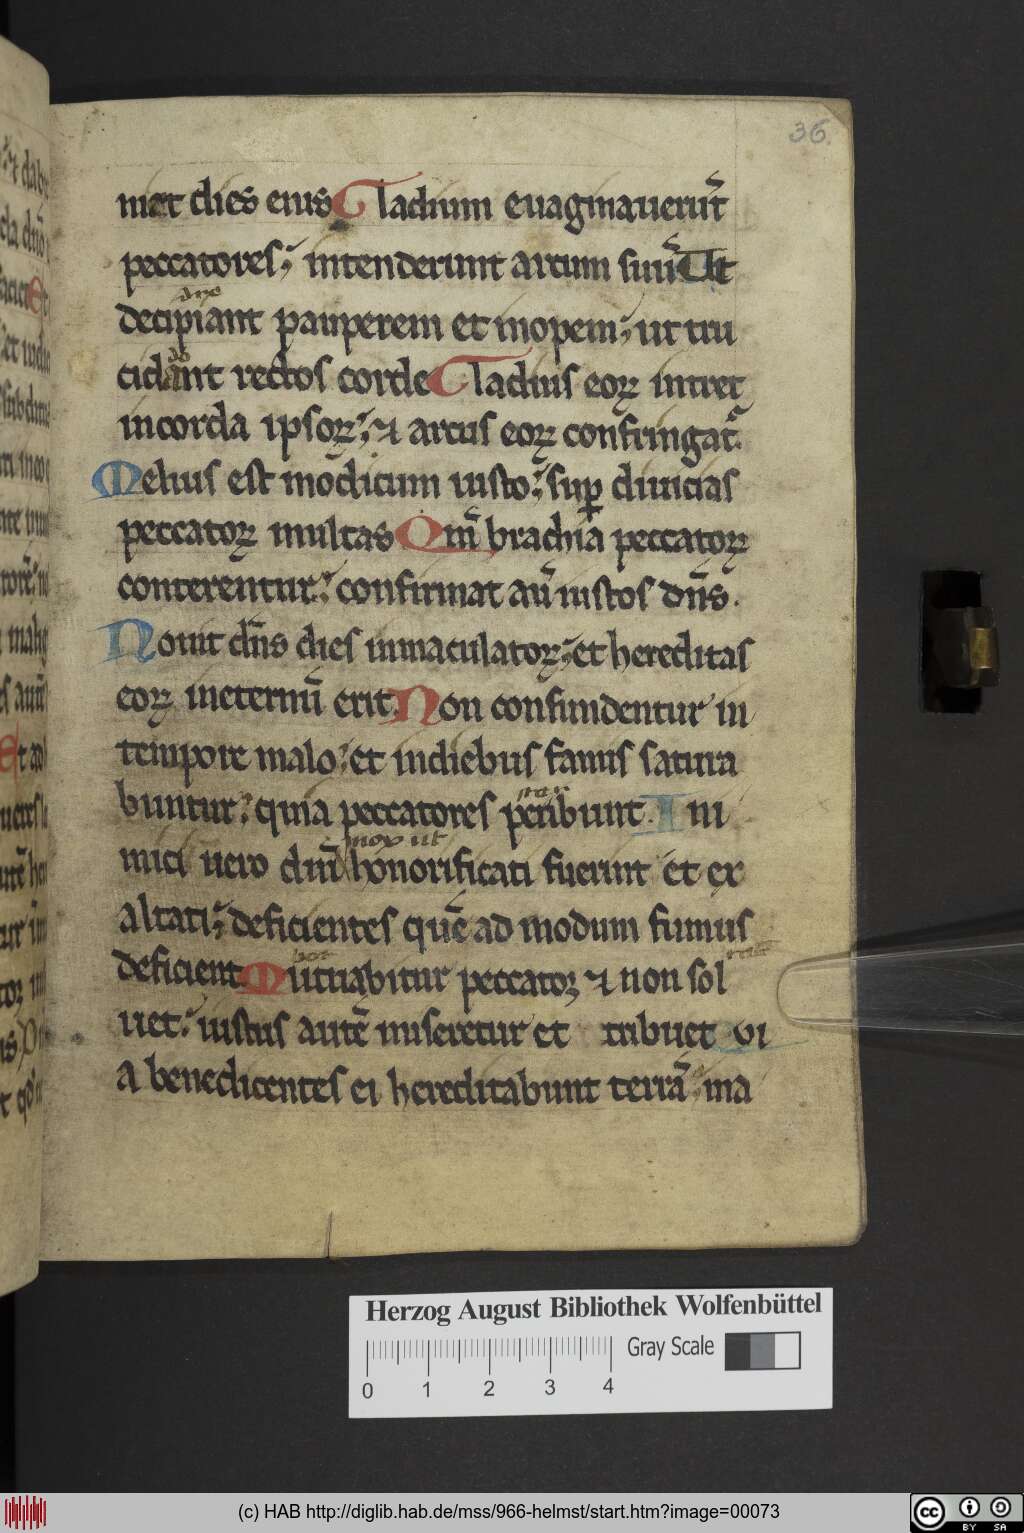 36.
niat dies eius Gladium euaginauerūt
peccatores; intenderunt arcum suū Ut
decipiant pauperem et inopem; ut tru
cidant rectos corde Gladius eoꝝ intret
in corda ipsoꝝ; ⁊ arcus eoꝝ confringat᷑.
Melius est modicum iusto; sup̱ diuicias
peccatoꝝ multas Qm̄ brachia peccatoꝝ
conterentur; confirmat aū iustos dn̄s.
Nouit dn̄s dies inmaculatoꝝ; et hereditas
eoꝝ in eternū erit. Non confundentur in
tempore malo; et in diebus famis satura
buntur; quia peccatores peribunt. Ini
mox ut
mici uero dn̄i honorificati fuerint et ex
altati; deficientes quē ad modum fumus
deficient. Mutuabitur peccatoꝛ ⁊ non sol
uet; iustus autē miseretur et tribuet Qi
a benedicentes ei hereditabunt terrā; ma
Herzog August Bibliothek Wolfenbüttel
Gray Scale
0 1 2 3 4
(c) HAB http://diglib.hab.de/mss/966-helmst/start.htm?image=00073
cc BY SA